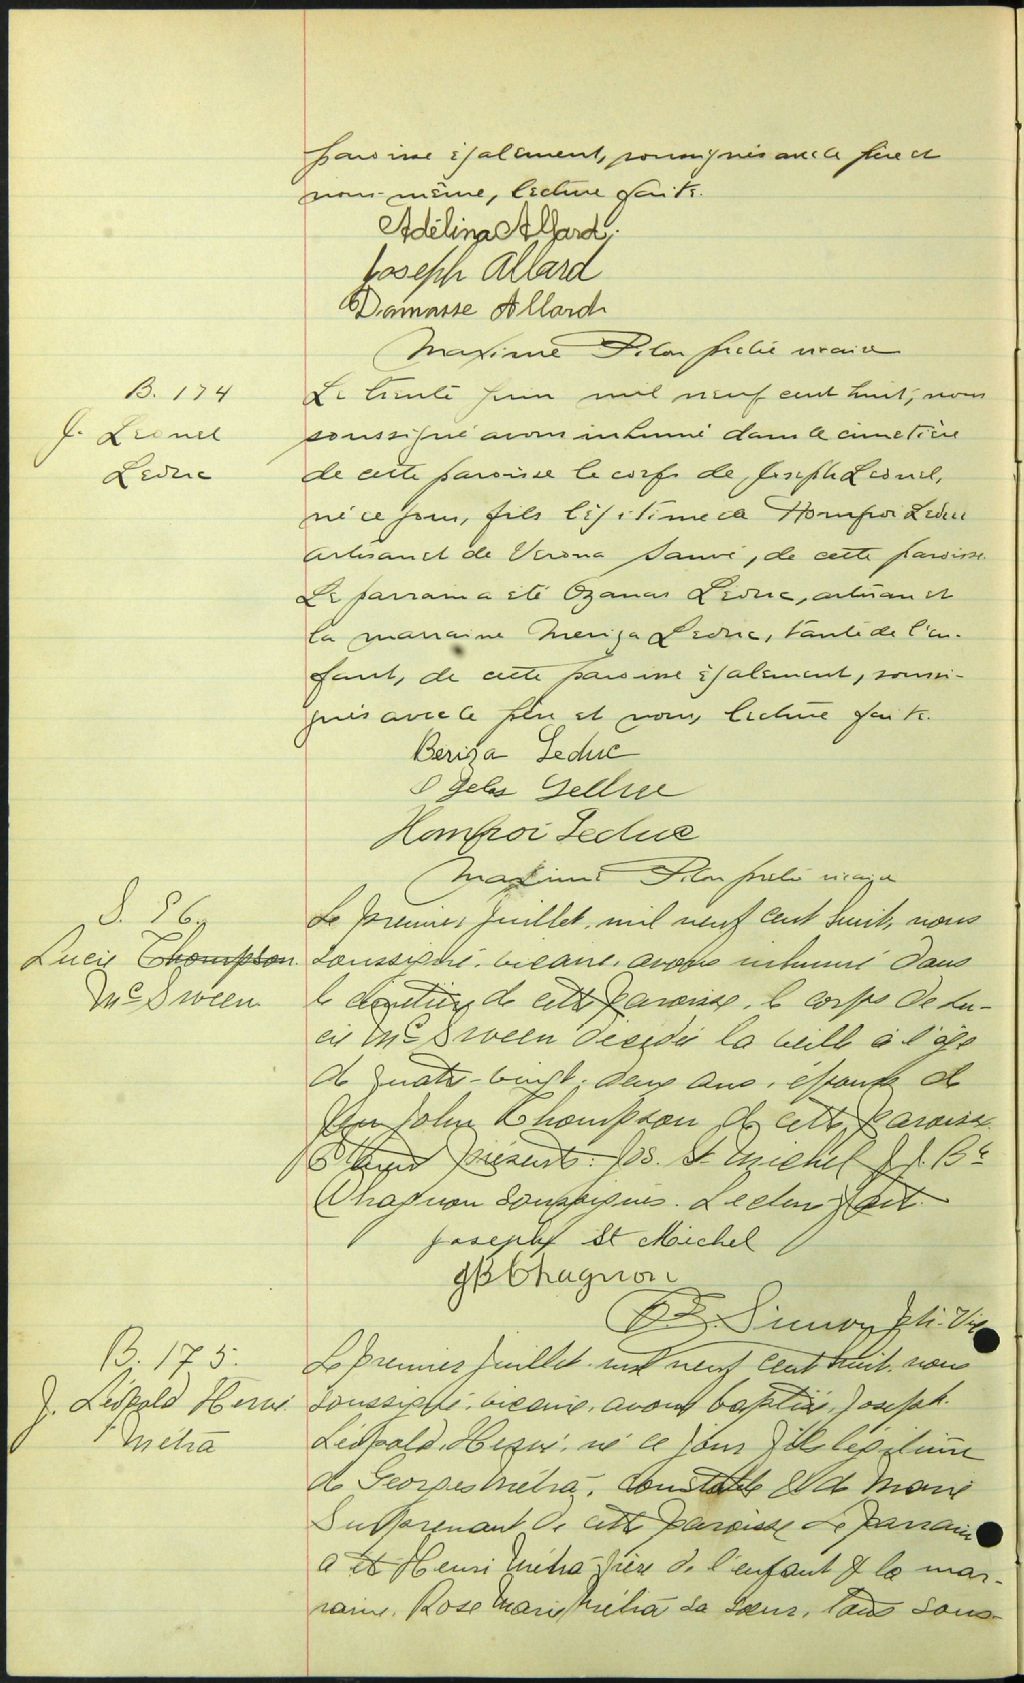 paroisse également, soussignés avec le père et
nous-même, lecture faite.
Adélina Allard
Joseph Allard
Damasse Allard
Maxime Pilon prêtre vicaire
B. 174
J. Leonel
Leduc
Le trente juin mil neuf cent huit, nous
soussigné avons inhumé dans le cimetière
de cette paroisse le corps de Joseph Leonel,
né ce jour, fils légitime de Homfroi Leduc
artisan et de Verona Sauvé, de cette paroisse.
Le parrain a été Leduc, artisan et
la marraine Leduc, tante de l'en-
fant, de cette paroisse également, soussi-
gnés avec le père et nous, lecture faite.
Beriza Leduc
Homfroi Leduc
Maxime Pilon prêtre vicaire
S. 96.
Lucie Thompson
Mc Sween
Le premier juillet, mil neuf cent huit, nous
soussigné, vicaire, avons inhumé dans
le cimetière de cette paroisse, le corps de Lu-
cie Mc Sween décédée la veille à l'âge
de quatre-vingt-deux ans, épouse de
feu John Thompson de cette paroisse
Etaient présents: Jos. St Michel & J. Bte
Chagnon soussignés. Lecture faite.
Joseph St Michel
JB Chagnon
Simon Ptr. Vic
B. 175.
J. Léopold Hervé
Métra
Le premier juillet mil neuf cent huit, nous
soussigné, vicaire, avons baptisé, Joseph
Léopold, Hervé, né ce jour fils légitime
de Georges Métra, constable & de Marie
Surprenant de cette paroisse Le parrain
a été Henri Métra frère de l'enfant & la mar-
raine, Rose Marie Métra sa sœur, tous sous-